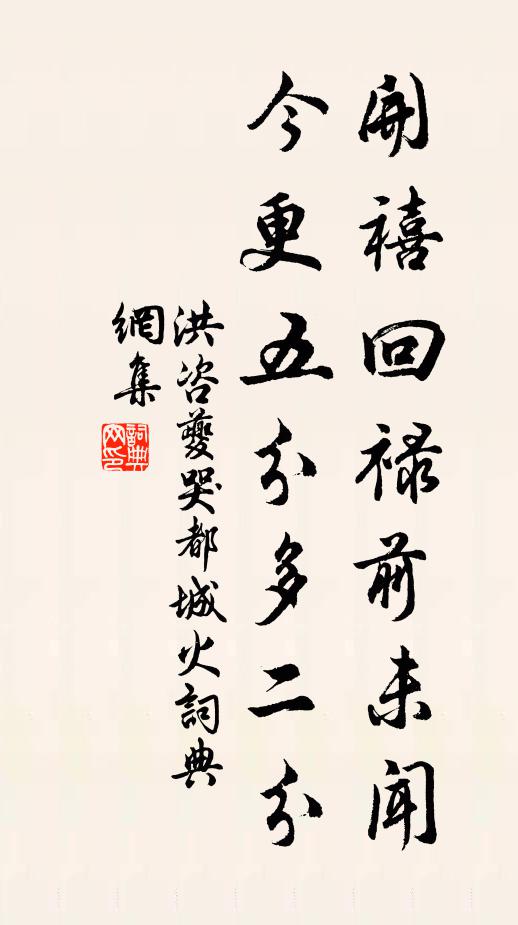 開禧回禄前未聞
今更五分多二分
洪咨夔哭都城火詞典
網集
詞典網印